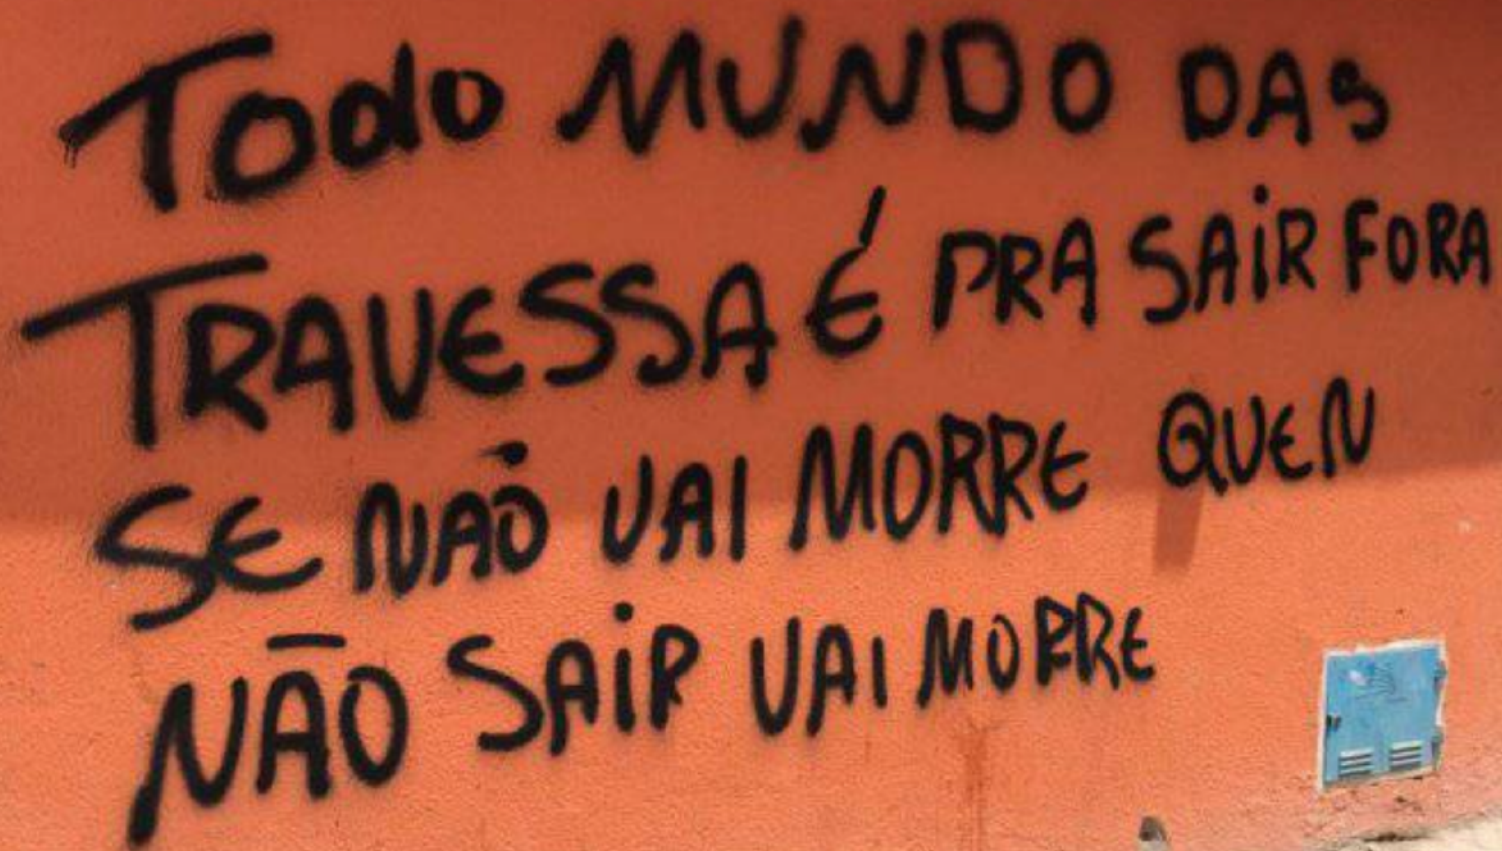 Todo MUNDO DAS
TRAVESSA É PRA SAiR FORA
SE NAO VAI MORRE QUEN
NÃO SAiR VAI MORRE